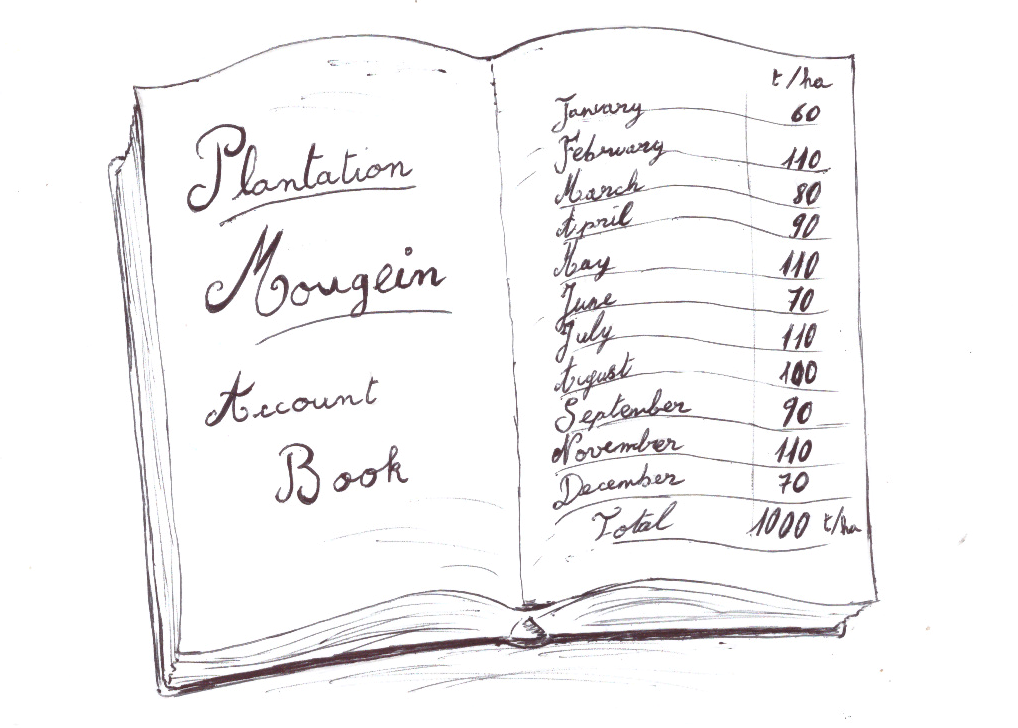 Plantation
Mougein
Account
Book
t/ha
January 60
February 110
March 80
April 90
May 110
June 70
July 110
August 100
September 90
November 110
December 70
Total 1000 t/ha